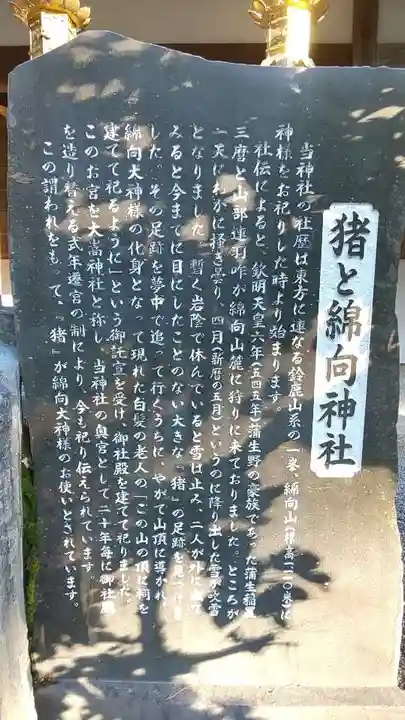 猪と綿向神社
当神社の社歴は東方に連なる鈴鹿山系の一峯・綿向山(標高一一一〇米)に
神様をお祀りした時より始まります。
社伝によると、欽明天皇六年(五四五年)蒲生野の豪族であった蒲生稲置
三麿と山部連羽咋が綿向山麓に狩りに来ておりました。ところが
一天にわかに掻き曇り、四月(新暦の五月)というのに降り出した雪が吹雪
となりました。暫く岩陰で休んでいると雪は止み、二人が外に出て
みると今までに目にしたことのない大きな「猪」の足跡を見
した。その足跡を夢中で追って行くうちに、やがて山頂に導かれ、
綿向大神様の化身となって現れた白髪の老人の「この山の頂に祠を
建てて祀るように」という御託宣を受け、御社殿を建てて祀りました。
このお宮を大嵩神社と称し、当神社の奥宮として二十年毎に御社殿
を造り替える式年遷宮の制により、今も祀り伝えられています。
この謂われをもって、「猪」が綿向大神様のお使いとされています。